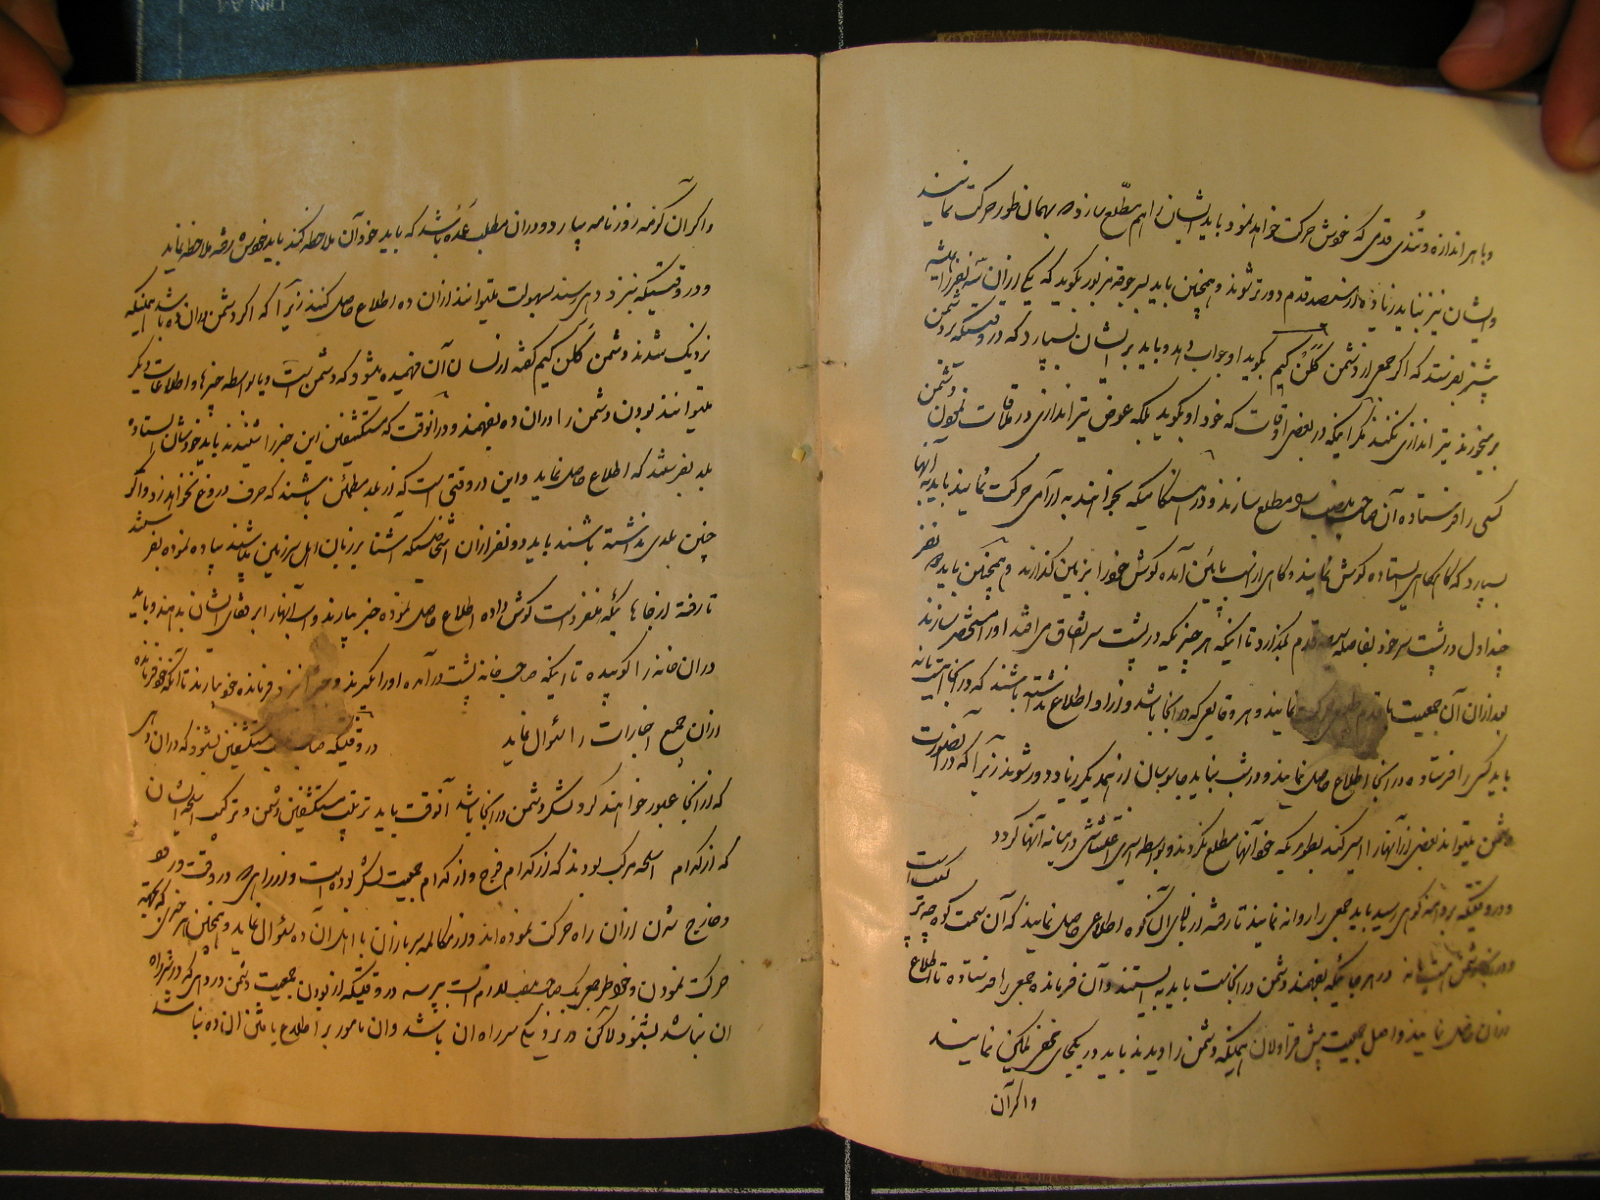 وبا هر اندازه وتندی قدمی که خودش حرکت خواهد نمود باید ایشان را هم مطلع سازد که بهمان طور حرکت نمایند
وایشان نیز نباید زیاده از سیصد قدم دورتر شوند وهمچنین باید بهر جوقه مزبور بگوید که یکی از آن سه نفر را همیشه
پیشتر بفرستد که اگر جمعی از دشمن کلن کیم بگوید او جواب دهد وباید بر ایشان بسپارد که در وقتیکه بر دشمن
بر میخورند تیر اندازی نکنند مگر اینکه در بعضی اوقات که خود او بگوید بلکه عوض تیر اندازی در ملاقات نمودن دشمن
کسی را فرستاده آن صاحب منصب را مطلع سازند ودر هنگامیکه بخواهند به آرامی حرکت نمایند باید به آنها
بسپارد که گاهگاهی ایستاده گوش نمایند وگاهی از اسب پائین آمده گوش خود را بزمین گذارند وهمچنین باید سه نفر
چنداول در پشت سر خود بفاصله سیصد قدم بگذارد تا اینکه هر چیزیکه در پشت سر اتفاق می افتد او را مشخص سازند
بعد از آن آن جمعیت با قدم حرکت نمایند وهر وقایعی که در آنجا باشد واز او اطلاع نداشته باشند که در آنجا است یا نه
باید کسی را فرستاده در آنجا اطلاع حاصل نمایند ودر شب نباید جاسوسان از همدیگر زیاد دور شوند زیرا که در آنصورت
دشمن میتواند بعضی از آنها را اسیر کند بطوریکه خود آنها مطلع نگردیده وبواسطه اسیری اغتشاشی در میانه آنها گردد
ودر وقتیکه بر دامنه کوهی رسید باید جمعی را روانه نمایند تا رفته در بالای آن کوه اطلاعی حاصل نمایند که آن سمت کوه چه چیز است
دشمن هست یا نه در هر جائیکه بفهمند دشمن در آنجاست باید بایستند وآن فرمانده جمعی را فرستاده تا اطلاع
از آن حاصل نمایند واصل جمعیت پیش قراولان همینکه دشمن را دیدند باید در یکجای مخفی تمکین نمایند
واگر آن
واگر آن گزمه روزنامه بسپارد ودر آن مطلب عمده باشد که باید خود آن ملاحظه کند باید خودش رفته ملاحظه نماید
ودر وقتیکه بنزد دهی رسند بسهولت میتوانند از آن ده اطلاع حاصل کنند زیرا که اگر دشمن در آن ده باشد همینکه
نزدیک شدند دشمن کلن کیم گفته از لسان آن فهمیده میشود که دشمن است ویا بواسطه خبرها واطلاعات دیگر
میتوانند بودن دشمن را در آن ده بفهمند ودر آنوقت که مستکشفین این خبر را شنیدند باید خودشان ایستاده
بلد بفرستند که اطلاع حاصل نماید واین در وقتی است که از بلد مطمئن باشند که حرف دروغ نخواهد زد واگر
چنین بلدی نداشته باشند باید دو نفر از آن اشخاصیکه آشنا بر زبان اهل سرزمین باشند پیاده نموده بفرستند
تا رفته از جاهائیکه منفرد است گوش داده اطلاع حاصل نموده خبر بیارند واسب آنها را بر رفقای ایشان بدهند وباید
در آن خانه را کوبیده تا اینکه صاحب خانه پشت در آمده او را بگیرند ونزد فرمانده خود بیارند تا آنکه خود فرمانده
از آن جمیع اخبارات را سئوال نماید در وقتیکه صاحب مستکشفین بشنود که در آن دهی
که از آنجا عبور خواهند کرد لشکر دشمن در آنجا باشد آنوقت باید ترتیب مستکشفین دشمن وترکیب اسلحه ایشان
که از کدام اسلحه مرکب بودند که از کدام فوج واز کدام جمعیت لشکر بوده است واز راهی که در وقت ورود
وخارج شدن از آن راه حرکت نموده اند واز مکالمه سربازان با اهل آن ده سئوال نماید وهمچنین هر خبری که بجهة
حرکت نمودن وخاطر جمعی یک صاحب منصب لازم است بپرسد در وقتیکه از بودن جمعیت دشمن در دهی که در سر راه
آن نباشد بشنود لاکن در نزدیکی سر راه آن باشد وآن مأمور بر اطلاع یافتن آن ده نباشد